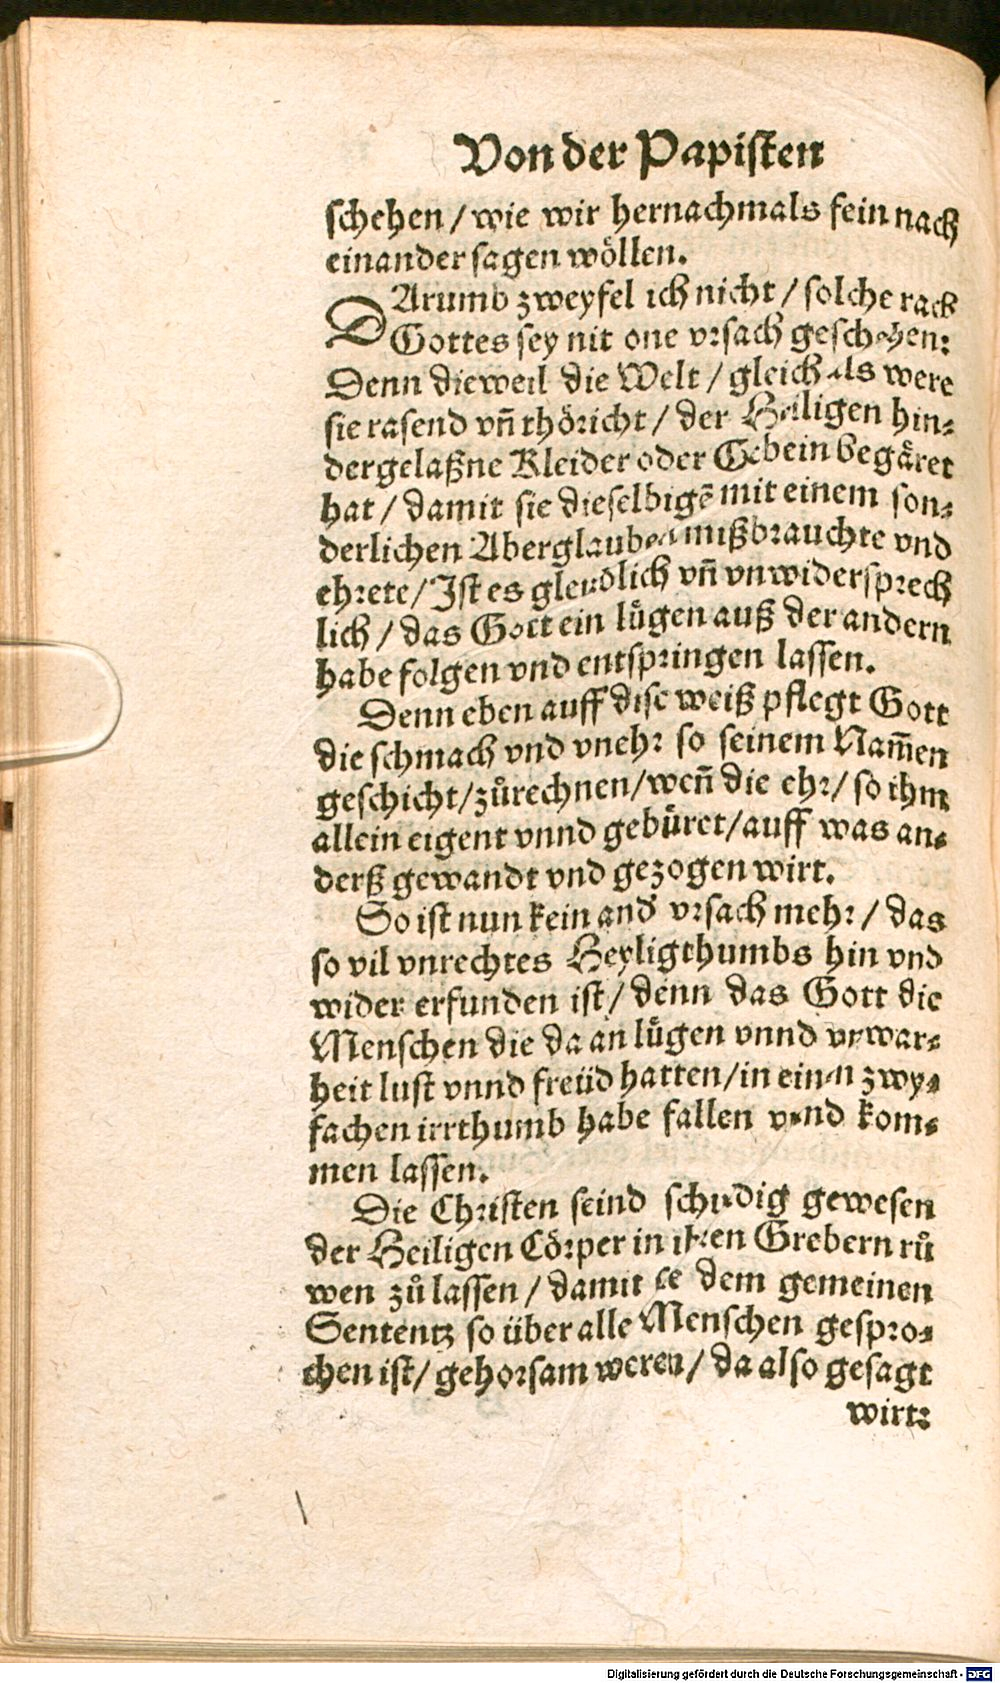 Von der Papisten
schehen / wie wir hernachmals fein nach
einander sagen wöllen.
DArumb zweyfel ich nicht / solche rach
Gottes sey nit one vrsach geschehen:
Denn dieweil die Welt / gleich als were
sie rasend vn̄ thöricht / der Heiligen hin⸗
dergelaßne Kleider oder Gebein begäret
hat / damit sie dieselbigē mit einem son⸗
derlichen Aberglauben mißbrauchte vnd
ehrete / Ist es gleublich vn̄ vnwidersprech
lich / das Gott ein lügen auß der andern
habe folgen vnd entspringen lassen.
Denn eben auff dise weiß pflegt Gott
die schmach vnd vnehr so seinem Nam̄en
geschicht / zůrechnen / wen̄ die ehr / so ihm
allein eigent vnnd gebüret / auff was an⸗
derß gewandt vnd gezogen wirt.
So ist nun kein and' vrsach mehr / das
so vil vnrechtes Heyligthumbs hin vnd
wider erfunden ist / denn das Gott die
Menschen die da an lügen vnnd vnwar⸗
heit lust vnnd freüd hatten / in einen zwy⸗
fachen irrthumb habe fallen vnnd kom⸗
men lassen.
Die Christen seind schuldig gewesen
der Heiligen Cörper in ihren Grebern rů
wen zů lassen / damit sie dem gemeinen
Sententz so über alle Menschen gespro⸗
chen ist / gehorsam weren / da also gesagt
wirt:
Digitalisierung gefördert durch die Deutsche Forschungsgemeinschaft - DFG